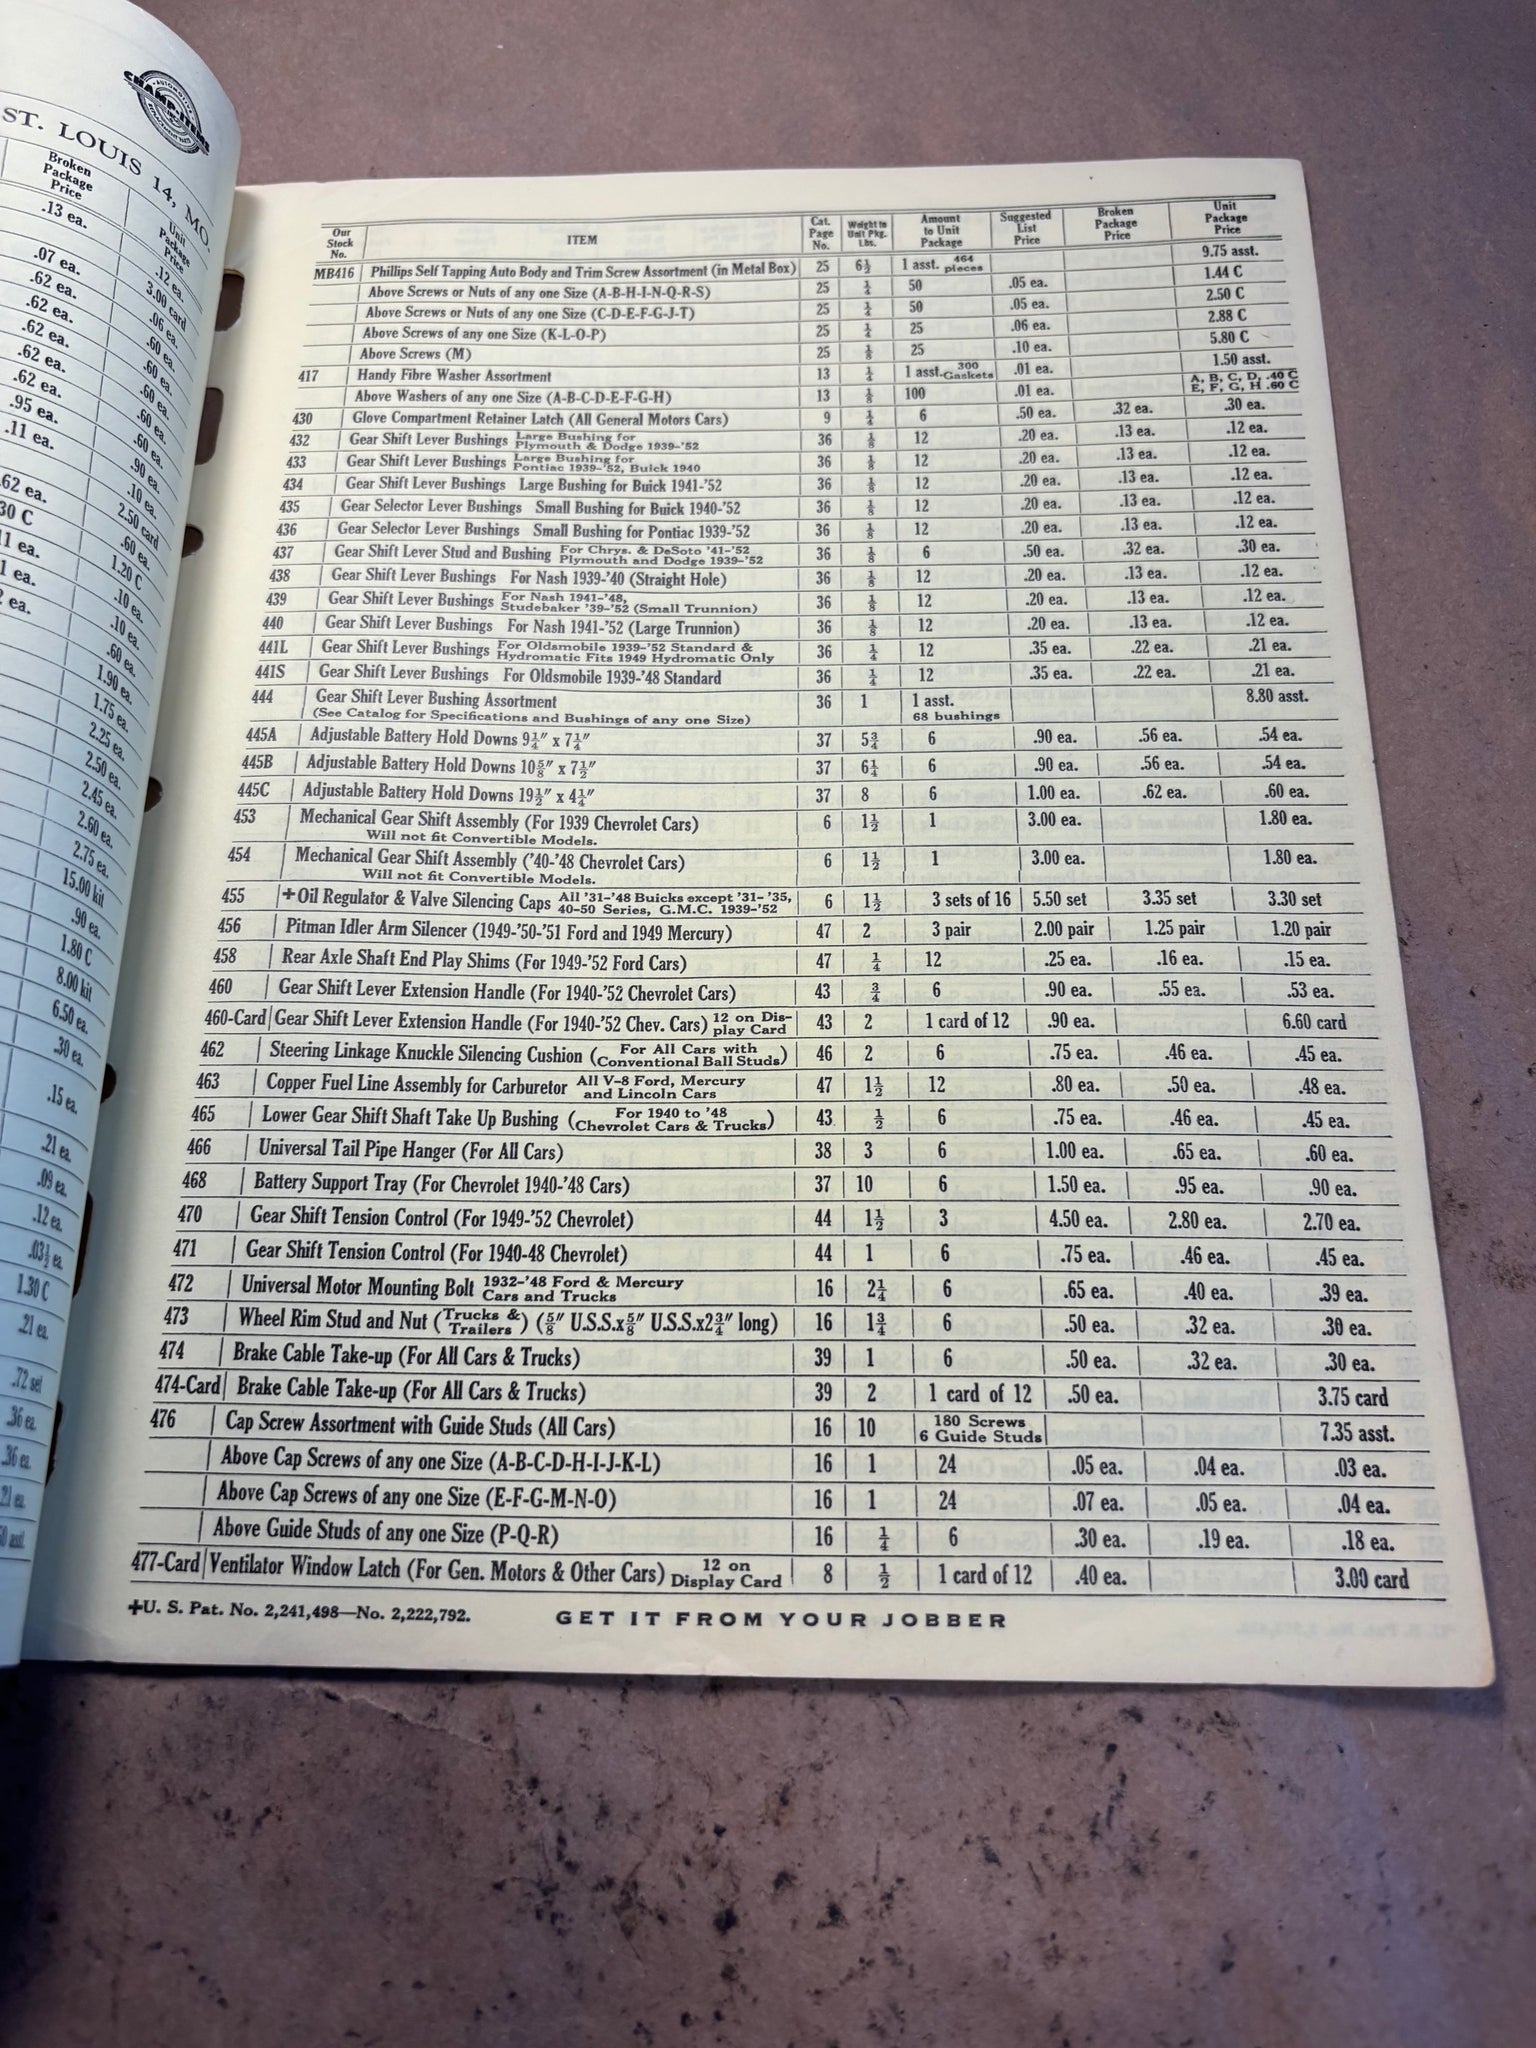 CHAMP-ITEMS
AUTOMOTIVE
REPLACEMENT PARTS
ST. LOUIS 14, MO.
Broken Package Price | Unit Package Price
.13 ea. | .12 ea.
3.00 card
.07 ea. | .06 ea.
.62 ea. | .60 ea.
.62 ea. | .60 ea.
.62 ea. | .60 ea.
.62 ea. | .60 ea.
.62 ea. | .60 ea.
.95 ea. | .90 ea.
.11 ea. | .10 ea.
2.50 card
.62 ea. | .60 ea.
1.20 C
.10 ea.
.10 ea.
.60 ea.
1.90 ea.
1.75 ea.
2.25 ea.
2.50 ea.
2.45 ea.
2.60 ea.
2.75 ea.
15.00 kit
.90 ea.
1.80 C
8.00 kit
6.50 ea.
.30 ea.
.15 ea.
.21 ea.
.09 ea.
.12 ea.
.03½ ea.
1.30 C
.21 ea.
.72 set
.36 ea.
.36 ea.
.21 ea.
Our Stock No. | ITEM | Cat. Page No. | Weight to Unit Pkg. Lbs. | Amount to Unit Package | Suggested List Price | Broken Package Price | Unit Package Price
MB416 | Phillips Self Tapping Auto Body and Trim Screw Assortment (in Metal Box) | 25 | 6½ | 1 asst. 464 pieces | 9.75 asst.
Above Screws or Nuts of any one Size (A-B-H-I-N-Q-R-S) | 25 | ¼ | 50 | .05 ea. | 1.44 C
Above Screws or Nuts of any one Size (C-D-E-F-G-J-T) | 25 | ¼ | 50 | .05 ea. | 2.50 C
Above Screws of any one Size (K-L-O-P) | 25 | ¼ | 25 | .06 ea. | 2.88 C
Above Screws (M) | 25 | ⅛ | 25 | .10 ea. | 5.80 C
417 | Handy Fibre Washer Assortment | 13 | ¼ | 1 asst. 300 Gaskets | .01 ea. | 1.50 asst.
Above Washers of any one Size (A-B-C-D-E-F-G-H) | 13 | ⅛ | 100 | .01 ea. | A, B, C, D, .40 C E, F, G, H .60 C
430 | Glove Compartment Retainer Latch (All General Motors Cars) | 9 | ¼ | 6 | .50 ea. | .32 ea. | .30 ea.
432 | Gear Shift Lever Bushings Large Bushing for Plymouth & Dodge 1939-'52 | 36 | ⅛ | 12 | .20 ea. | .13 ea. | .12 ea.
433 | Gear Shift Lever Bushings Large Bushing for Pontiac 1939-'52, Buick 1940 | 36 | ⅛ | 12 | .20 ea. | .13 ea. | .12 ea.
434 | Gear Shift Lever Bushings Large Bushing for Buick 1941-'52 | 36 | ⅛ | 12 | .20 ea. | .13 ea. | .12 ea.
435 | Gear Selector Lever Bushings Small Bushing for Buick 1940-'52 | 36 | ⅛ | 12 | .20 ea. | .13 ea. | .12 ea.
436 | Gear Selector Lever Bushings Small Bushing for Pontiac 1939-'52 | 36 | ⅛ | 12 | .20 ea. | .13 ea. | .12 ea.
437 | Gear Shift Lever Stud and Bushing For Chrys. & DeSoto '41-'52 Plymouth and Dodge 1939-'52 | 36 | ⅛ | 6 | .50 ea. | .32 ea. | .30 ea.
438 | Gear Shift Lever Bushings For Nash 1939-'40 (Straight Hole) | 36 | ⅛ | 12 | .20 ea. | .13 ea. | .12 ea.
439 | Gear Shift Lever Bushings For Nash 1941-'48, Studebaker '39-'52 (Small Trunnion) | 36 | ⅛ | 12 | .20 ea. | .13 ea. | .12 ea.
440 | Gear Shift Lever Bushings For Nash 1941-'52 (Large Trunnion) | 36 | ⅛ | 12 | .20 ea. | .13 ea. | .12 ea.
441L | Gear Shift Lever Bushings For Oldsmobile 1939-'52 Standard & Hydromatic Fits 1949 Hydromatic Only | 36 | ¼ | 12 | .35 ea. | .22 ea. | .21 ea.
441S | Gear Shift Lever Bushings For Oldsmobile 1939-'48 Standard | 36 | ¼ | 12 | .35 ea. | .22 ea. | .21 ea.
444 | Gear Shift Lever Bushing Assortment | 36 | 1 | 1 asst. | 8.80 asst.
(See Catalog for Specifications and Bushings of any one Size) | 68 bushings
445A | Adjustable Battery Hold Downs 9¼″ x 7¼″ | 37 | 5¾ | 6 | .90 ea. | .56 ea. | .54 ea.
445B | Adjustable Battery Hold Downs 10⅝″ x 7½″ | 37 | 6¼ | 6 | .90 ea. | .56 ea. | .54 ea.
445C | Adjustable Battery Hold Downs 19½″ x 4¼″ | 37 | 8 | 6 | 1.00 ea. | .62 ea. | .60 ea.
453 | Mechanical Gear Shift Assembly (For 1939 Chevrolet Cars) | 6 | 1½ | 1 | 3.00 ea. | 1.80 ea.
Will not fit Convertible Models.
454 | Mechanical Gear Shift Assembly ('40-'48 Chevrolet Cars) | 6 | 1½ | 1 | 3.00 ea. | 1.80 ea.
Will not fit Convertible Models.
455 | +Oil Regulator & Valve Silencing Caps All '31-'48 Buicks except '31-'35, 40-50 Series, G.M.C. 1939-'52 | 6 | 1½ | 3 sets of 16 | 5.50 set | 3.35 set | 3.30 set
456 | Pitman Idler Arm Silencer (1949-'50-'51 Ford and 1949 Mercury) | 47 | 2 | 3 pair | 2.00 pair | 1.25 pair | 1.20 pair
458 | Rear Axle Shaft End Play Shims (For 1949-'52 Ford Cars) | 47 | ¼ | 12 | .25 ea. | .16 ea. | .15 ea.
460 | Gear Shift Lever Extension Handle (For 1940-'52 Chevrolet Cars) | 43 | ¾ | 6 | .90 ea. | .55 ea. | .53 ea.
460-Card | Gear Shift Lever Extension Handle (For 1940-'52 Chev. Cars) 12 on Display Card | 43 | 2 | 1 card of 12 | .90 ea. | 6.60 card
462 | Steering Linkage Knuckle Silencing Cushion (For All Cars with Conventional Ball Studs) | 46 | 2 | 6 | .75 ea. | .46 ea. | .45 ea.
463 | Copper Fuel Line Assembly for Carburetor All V-8 Ford, Mercury and Lincoln Cars | 47 | 1½ | 12 | .80 ea. | .50 ea. | .48 ea.
465 | Lower Gear Shift Shaft Take Up Bushing (For 1940 to '48 Chevrolet Cars & Trucks) | 43 | ½ | 6 | .75 ea. | .46 ea. | .45 ea.
466 | Universal Tail Pipe Hanger (For All Cars) | 38 | 3 | 6 | 1.00 ea. | .65 ea. | .60 ea.
468 | Battery Support Tray (For Chevrolet 1940-'48 Cars) | 37 | 10 | 6 | 1.50 ea. | .95 ea. | .90 ea.
470 | Gear Shift Tension Control (For 1949-'52 Chevrolet) | 44 | 1½ | 3 | 4.50 ea. | 2.80 ea. | 2.70 ea.
471 | Gear Shift Tension Control (For 1940-48 Chevrolet) | 44 | 1 | 6 | .75 ea. | .46 ea. | .45 ea.
472 | Universal Motor Mounting Bolt 1932-'48 Ford & Mercury Cars and Trucks | 16 | 2¼ | 6 | .65 ea. | .40 ea. | .39 ea.
473 | Wheel Rim Stud and Nut (Trucks & Trailers) (⅝″ U.S.S.x⅝″ U.S.S.x2¾″ long) | 16 | 1¾ | 6 | .50 ea. | .32 ea. | .30 ea.
474 | Brake Cable Take-up (For All Cars & Trucks) | 39 | 1 | 6 | .50 ea. | .32 ea. | .30 ea.
474-Card | Brake Cable Take-up (For All Cars & Trucks) | 39 | 2 | 1 card of 12 | .50 ea. | 3.75 card
476 | Cap Screw Assortment with Guide Studs (All Cars) | 16 | 10 | 180 Screws 6 Guide Studs | 7.35 asst.
Above Cap Screws of any one Size (A-B-C-D-H-I-J-K-L) | 16 | 1 | 24 | .05 ea. | .04 ea. | .03 ea.
Above Cap Screws of any one Size (E-F-G-M-N-O) | 16 | 1 | 24 | .07 ea. | .05 ea. | .04 ea.
Above Guide Studs of any one Size (P-Q-R) | 16 | ¼ | 6 | .30 ea. | .19 ea. | .18 ea.
477-Card | Ventilator Window Latch (For Gen. Motors & Other Cars) 12 on Display Card | 8 | ½ | 1 card of 12 | .40 ea. | 3.00 card
+U. S. Pat. No. 2,241,498—No. 2,222,792. GET IT FROM YOUR JOBBER